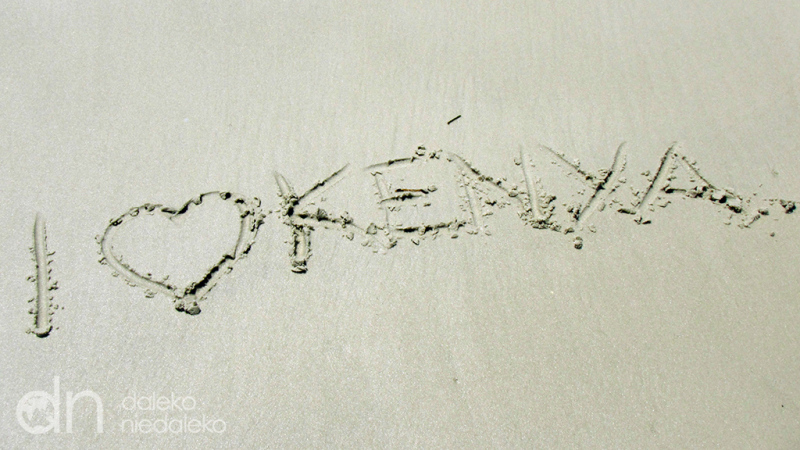 I ♥ KENYA
dn daleko
niedaleko